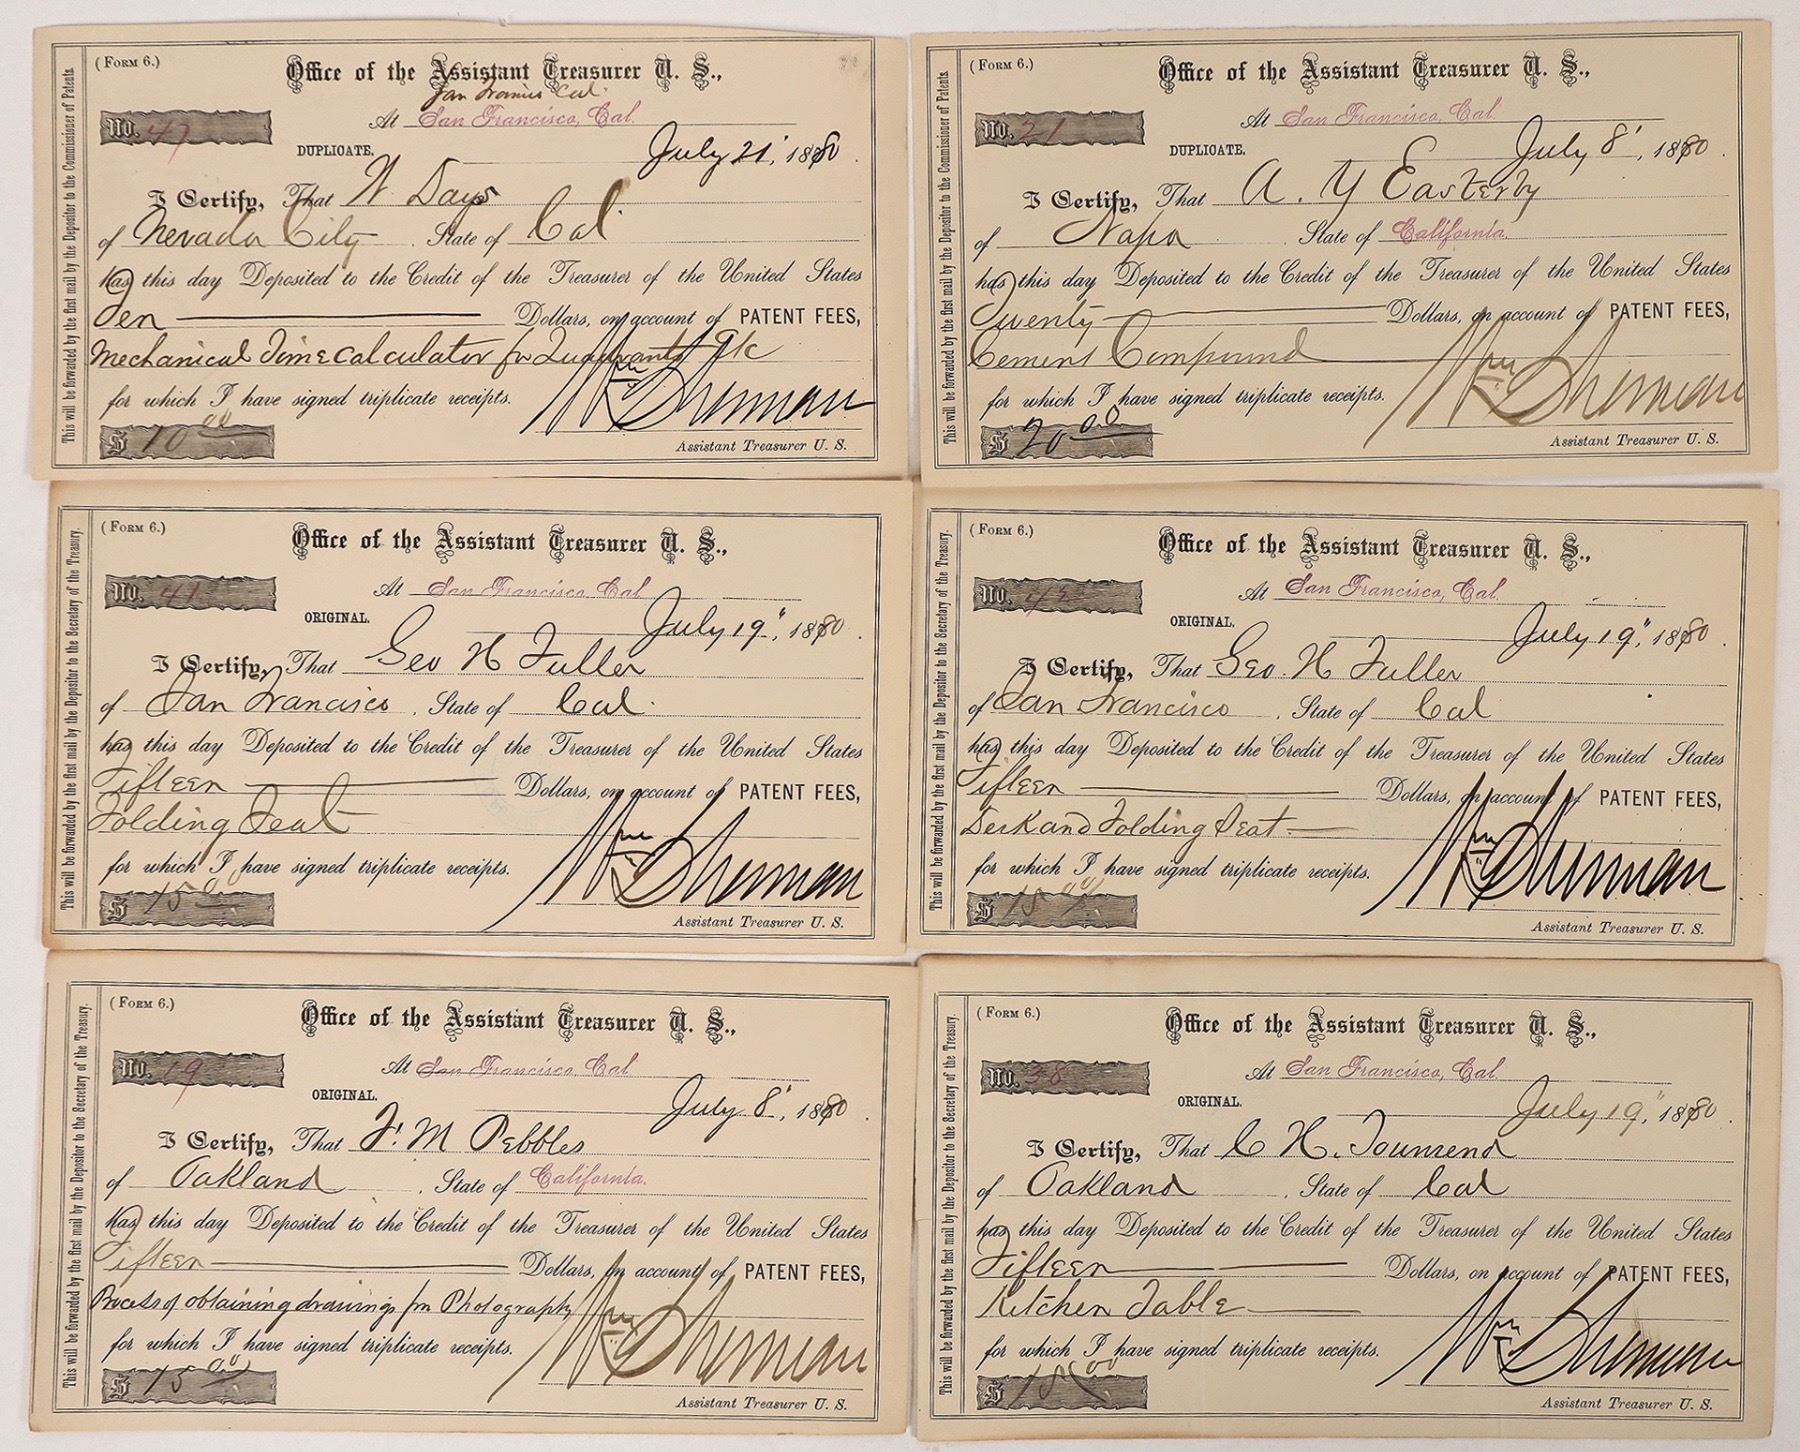 This will be forwarded by the first mail by the Depositor to the Commissioner of Patents.
(FORM 6.)
Office of the Assistant Treasurer U. S.,
San Francis Cal.
No. 47
At San Francisco, Cal.
DUPLICATE.
July 21', 1880.
I Certify, That W Days
of Nevada City. State of Cal.
has this day Deposited to the Credit of the Treasurer of the United States
Ten Dollars, on account of PATENT FEES,
Mechanical Time Calculator for Quadrants &c
for which I have signed triplicate receipts.
Wm Sherman
$ 10 00
Assistant Treasurer U. S.
This will be forwarded by the first mail by the Depositor to the Commissioner of Patents.
(FORM 6.)
Office of the Assistant Treasurer U. S.,
No. 21
At San Francisco, Cal.
DUPLICATE.
July 8', 1880.
I Certify, That A. Y Easterby
of Napa State of California.
has this day Deposited to the Credit of the Treasurer of the United States
Twenty Dollars, on account of PATENT FEES,
Cement Compound
for which I have signed triplicate receipts.
Wm Sherman
$ 20 00
Assistant Treasurer U. S.
This will be forwarded by the first mail by the Depositor to the Secretary of the Treasury.
(FORM 6.)
Office of the Assistant Treasurer U. S.,
No. 41
At San Francisco, Cal
ORIGINAL.
July 19", 1880.
I Certify, That Geo H Fuller
of San Francisco. State of Cal.
has this day Deposited to the Credit of the Treasurer of the United States
Fifteen Dollars, on account of PATENT FEES,
Folding Seat
for which I have signed triplicate receipts.
Wm Sherman
$ 15 00
Assistant Treasurer U. S.
This will be forwarded by the first mail by the Depositor to the Secretary of the Treasury.
(FORM 6.)
Office of the Assistant Treasurer U. S.,
No. 42
At San Francisco, Cal.
ORIGINAL.
July 19", 1880.
I Certify, That Geo. H Fuller
of San Francisco. State of Cal
has this day Deposited to the Credit of the Treasurer of the United States
Fifteen Dollars, on account of PATENT FEES,
Desk and Folding Seat
for which I have signed triplicate receipts.
Wm Sherman
$ 15 00
Assistant Treasurer U. S.
This will be forwarded by the first mail by the Depositor to the Secretary of the Treasury.
(FORM 6.)
Office of the Assistant Treasurer U. S.,
No. 19
At San Francisco, Cal
ORIGINAL.
July 8', 1880.
I Certify, That F. M Pebbles
of Oakland. State of California.
has this day Deposited to the Credit of the Treasurer of the United States
Fifteen Dollars, on account of PATENT FEES,
Process of obtaining drawings fm Photographs
for which I have signed triplicate receipts.
Wm Sherman
$ 15 00
Assistant Treasurer U. S.
This will be forwarded by the first mail by the Depositor to the Secretary of the Treasury.
(FORM 6.)
Office of the Assistant Treasurer U. S.,
No. 38
At San Francisco, Cal
ORIGINAL.
July 19", 1880.
I Certify, That C H. Townsend
of Oakland. State of Cal
has this day Deposited to the Credit of the Treasurer of the United States
Fifteen Dollars, on account of PATENT FEES,
Kitchen Table
for which I have signed triplicate receipts.
Wm Sherman
$ 15 00
Assistant Treasurer U. S.